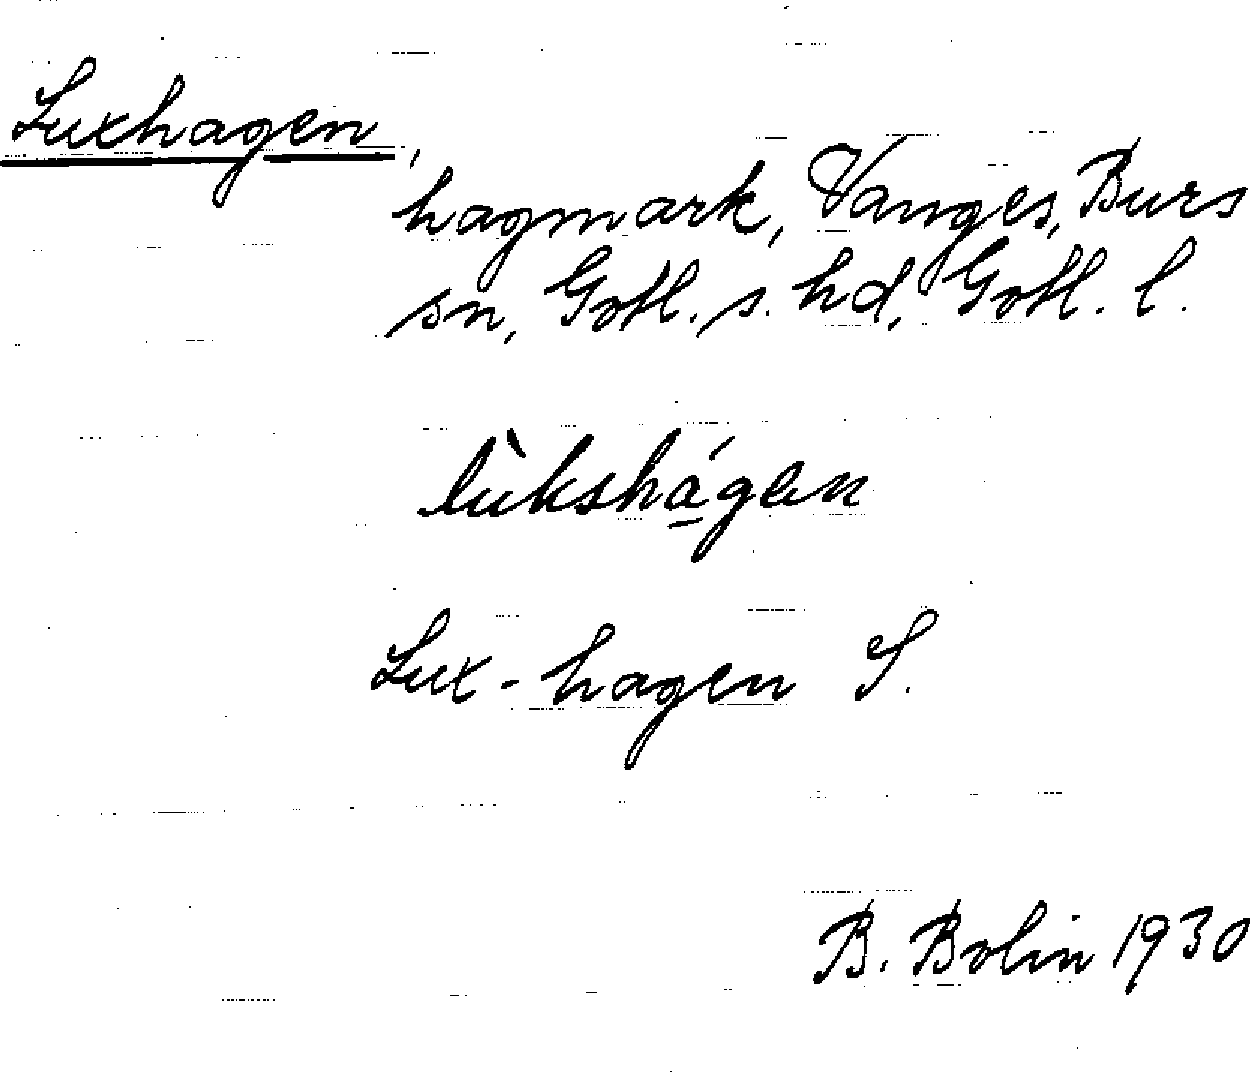 Luxhagen,
hagmark, Vanges, Burs
sn, Gotl. s. hd, Gotl. l.
lùkshá̱gen
Lux-hagen S.
B. Bolin 1930